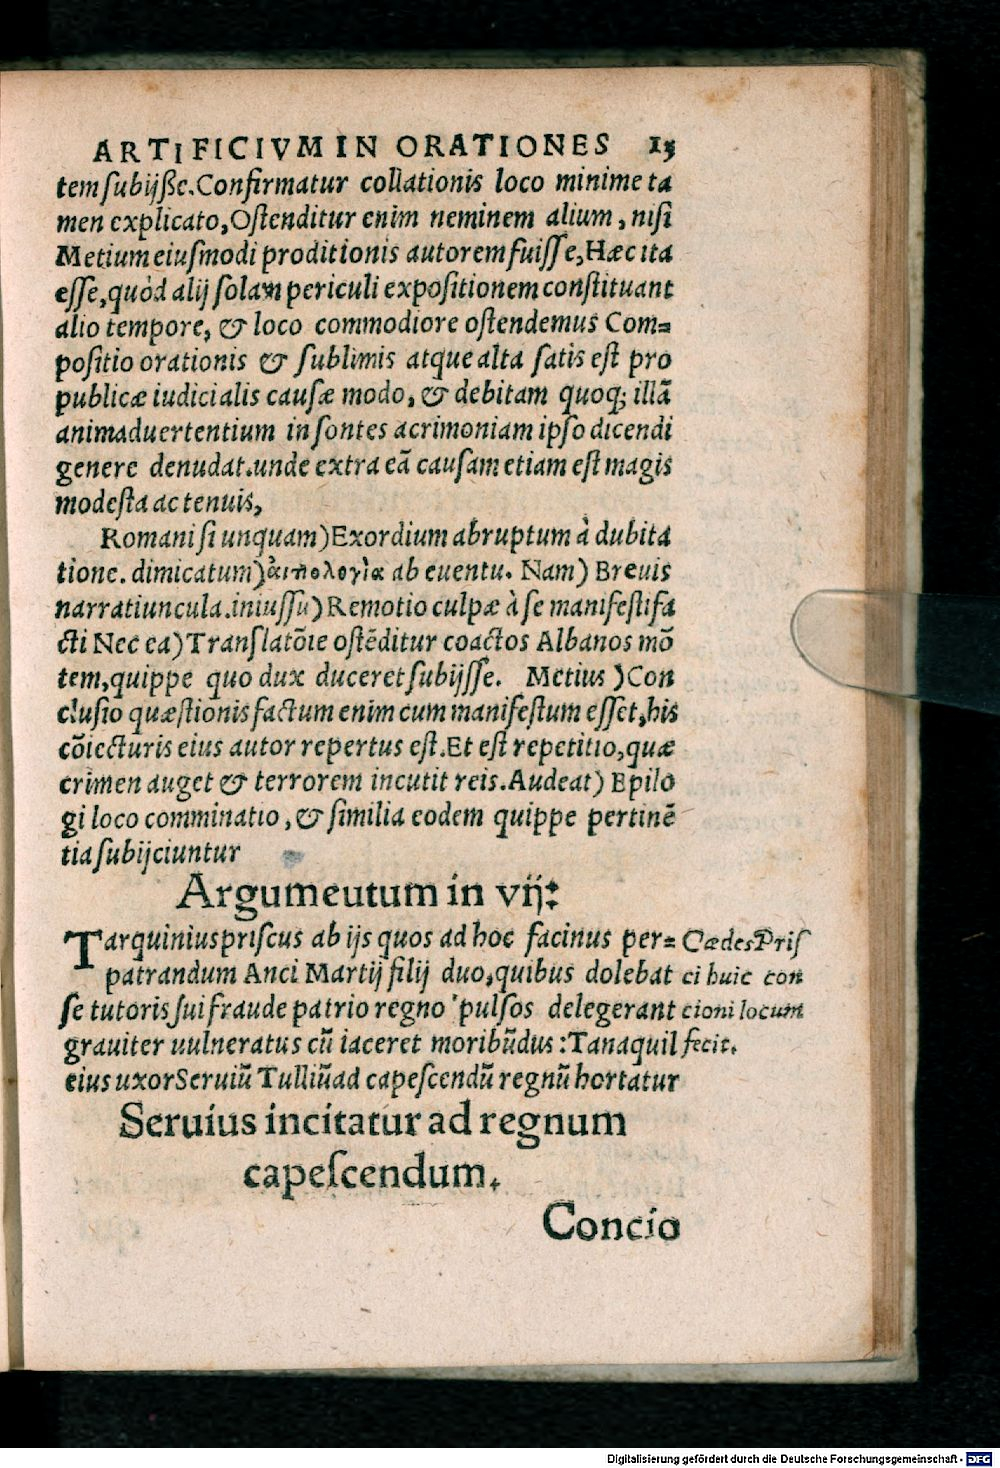 ARTIFICIVM IN ORATIONES 15
tem ſubijße. Confirmatur collationis loco minime ta
men explicato, Oſtenditur enim neminem alium, niſi
Metium eiuſmodi proditionis autorem fuiſſe, Hæc ita
eſſe, quòd alij ſolam periculi expoſitionem conſtituant
alio tempore, & loco commodiore oſtendemus Com⸗
poſitio orationis & ſublimis atque alta ſatis eſt pro
publicæ iudicialis cauſæ modo, & debitam quoq; illã
animaduertentium in ſontes acrimoniam ipſo dicendi
genere denudat. unde extra eã cauſam etiam eſt magis
modeſta ac tenuis,
Romani ſi unquam) Exordium abruptum à dubita
tione. dimicatum) ἀιτιολογία ab euentu. Nam) Breuis
narratiuncula. iniuſſu) Remotio culpæ à ſe manifeſti fa
cti Nec ea) Tranſlatõie oſtẽditur coactos Albanos mõ
tem, quippe quo dux duceret ſubijſſe. Metius) Con
cluſio quæſtionis factum enim cum manifeſtum eſſet, his
cõiecturis eius autor repertus eſt. Et eſt repetitio, quæ
crimen auget & terrorem incutit reis. Audeat) Epilo
gi loco comminatio, & ſimilia eodem quippe pertinẽ
tia ſubijciuntur
Argumeutum in vij:
Tarquinius priſcus ab ijs quos ad hoc facinus per⸗
patrandum Anci Martij filij duo, quibus dolebat
ſe tutoris ſui fraude patrio regno 'pulſos delegerant
grauiter uulneratus cũ iaceret moribũdus: Tanaquil
eius uxor Seruiũ Tulliũ ad capeſcendũ regnũ hortatur
Cædes Priſ
ci huic con
cioni locum
fecit.
Seruius incitatur ad regnum
capeſcendum.
Concio
Digitalisierung gefördert durch die Deutsche Forschungsgemeinschaft - DFG